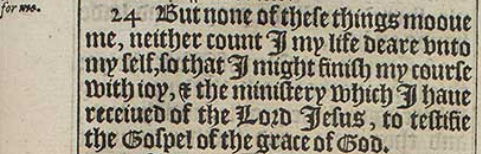 for vvs.
24 But none of these things mooue
me, neither count I my life deare vnto
my self, so that I might finish my course
with ioy, & the ministery which I haue
receiued of the Lord Jesus, to testifie
the Gospel of the grace of God.